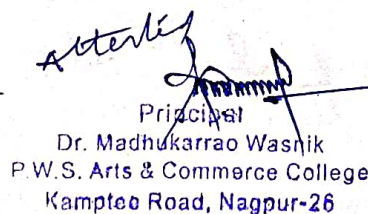 Attested
Principal
Dr. Madhukarrao Wasnik
P.W.S. Arts & Commerce College
Kamptee Road, Nagpur-26